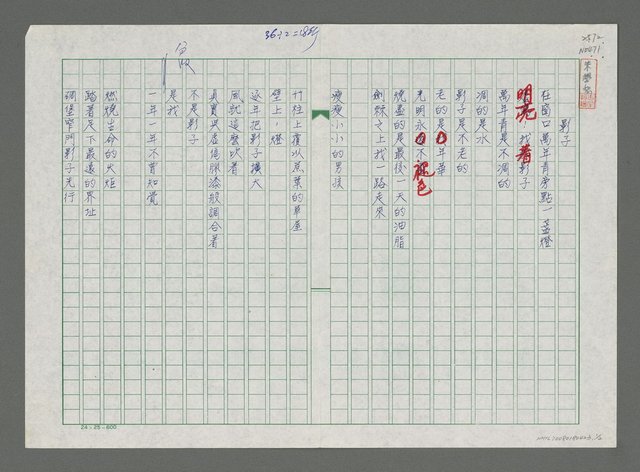 36÷2=18行
影子
在窗口萬年青旁點一盞燈
明亮找著影子
萬年青是不凋的
凋的是水
影子是不老的
老的是年華
光明永不褪色
燒盡的是最後一天的油脂
劍棘之上找一路走來
瘦瘦小小的男孩
竹柱上覆以蔗葉的草屋
壁上,燈
這年把影子擴大
風就這麼吹著
真實與虛偽膠漆般調合著
不是影子
是我
一年一年不曾知覺
燃燒生命的火炬
踏著足下最遠的界址
碉堡緊鬥影子先行
24×25=600